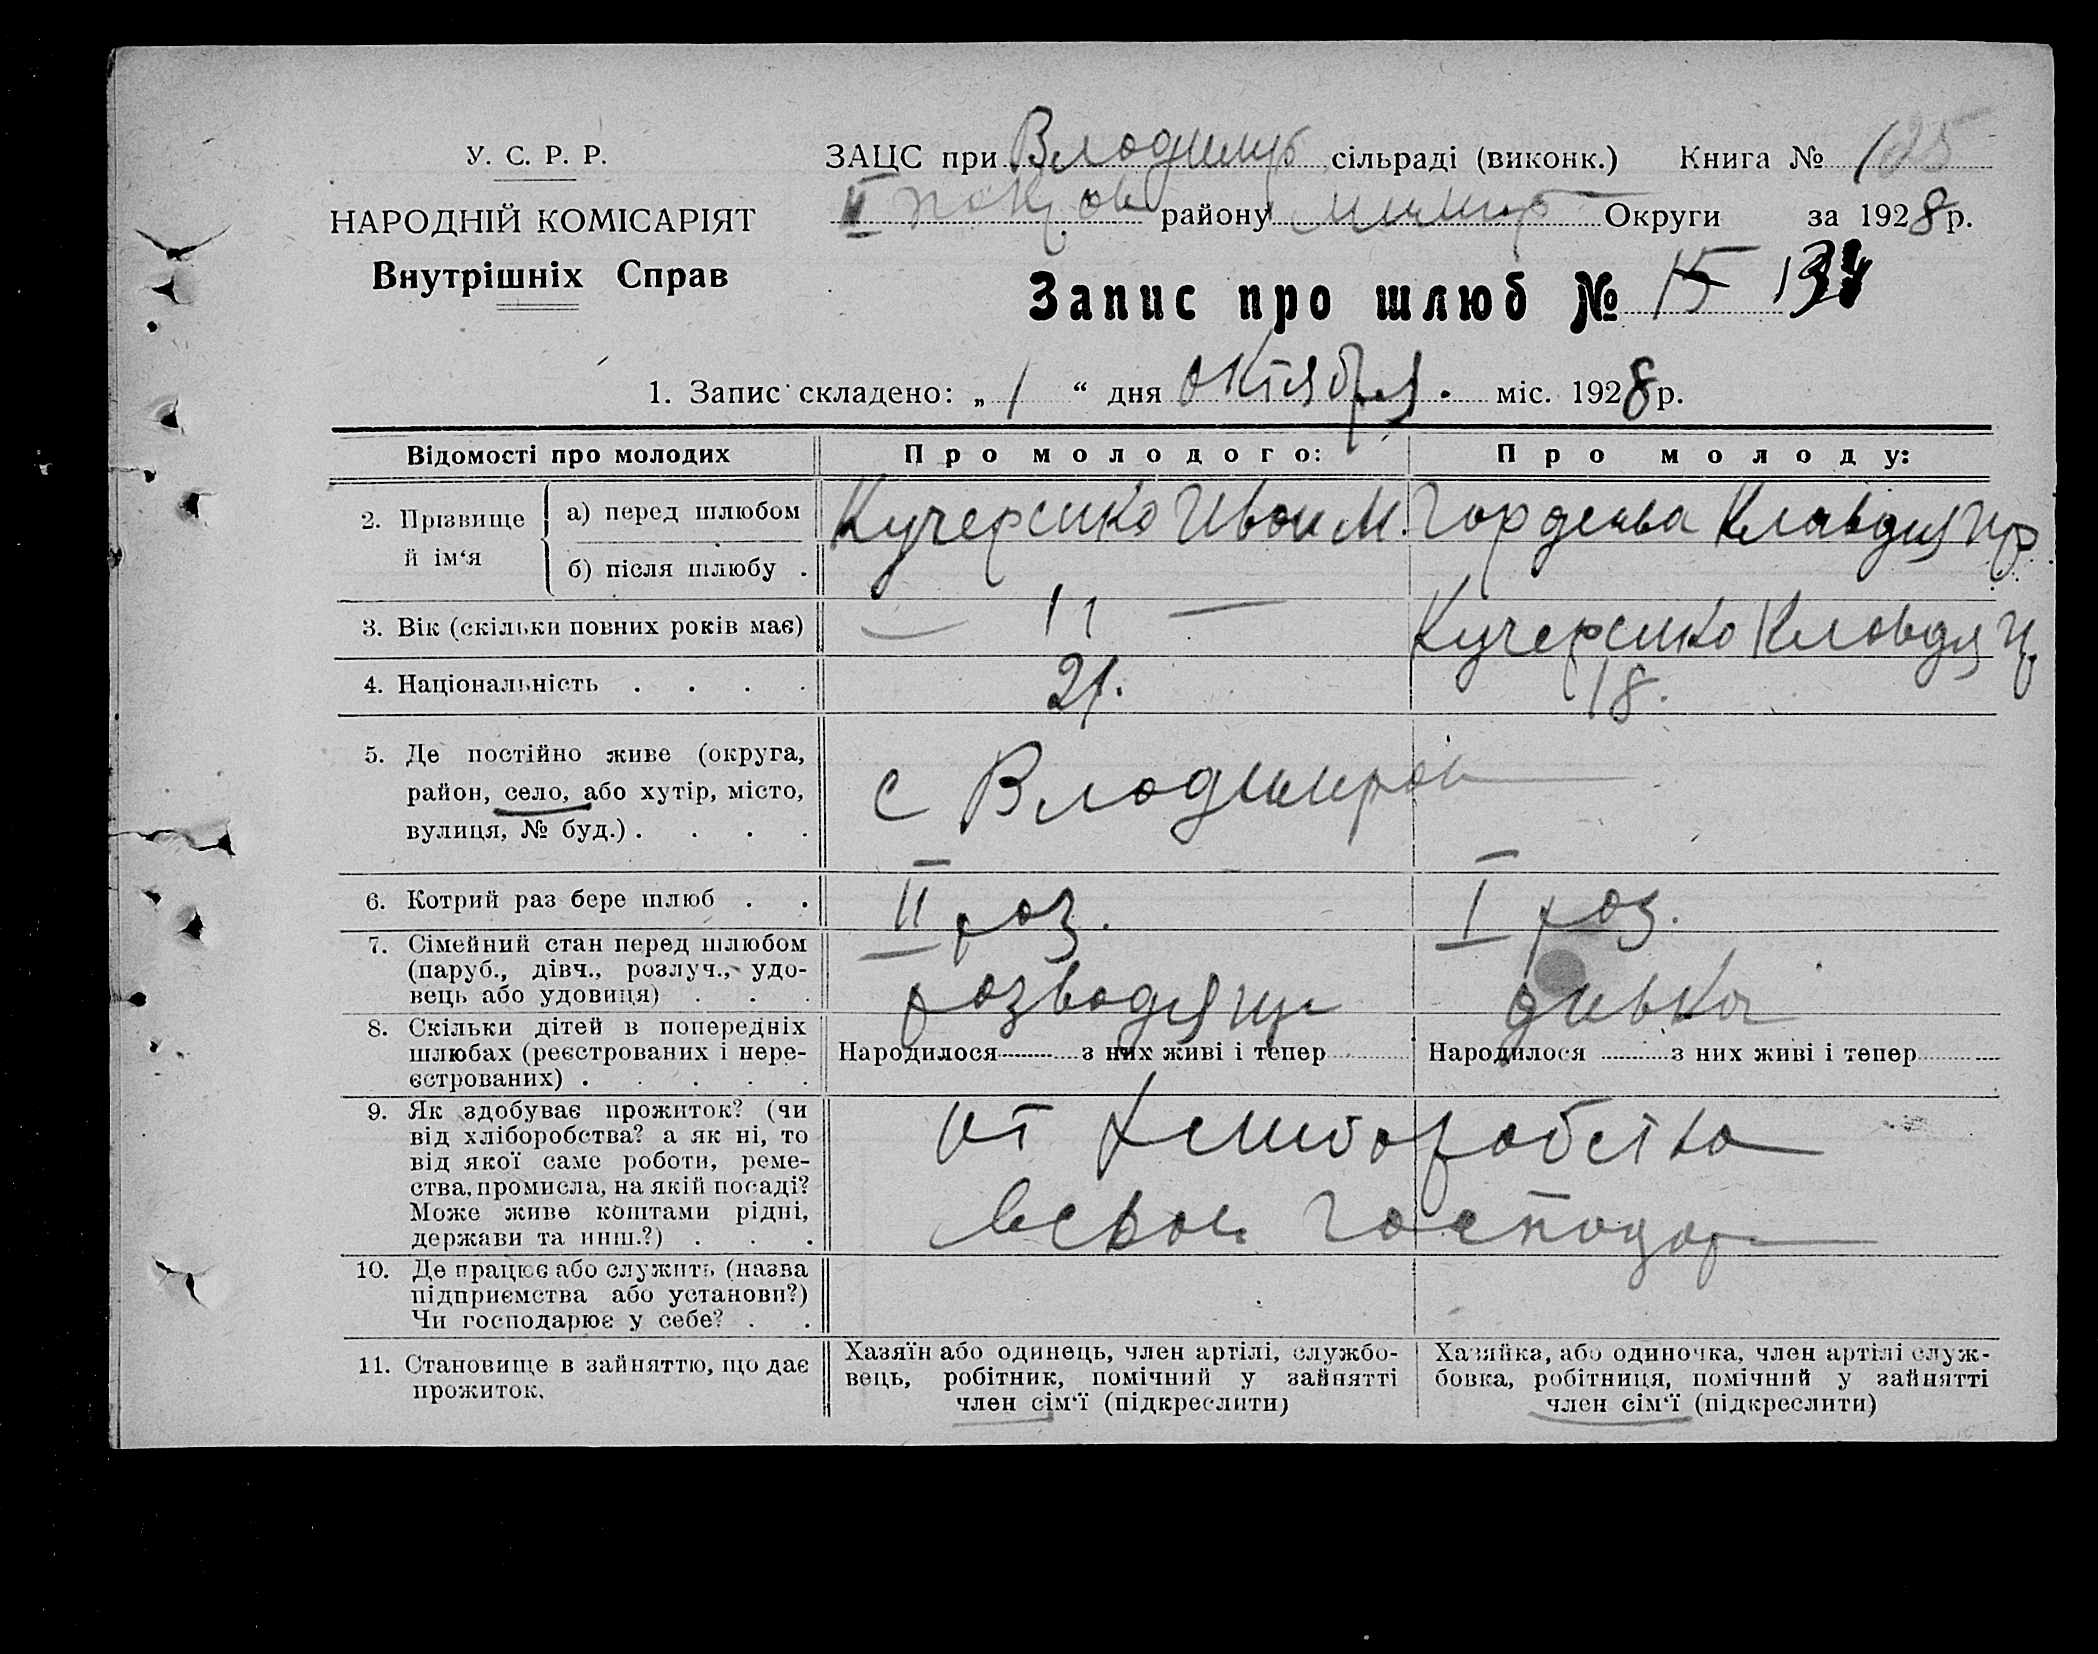 У. С. Р. Р.
НАРОДНІЙ КОМІСАРІЯТ
Внутрішніх Справ
ЗАЦС при Владимир сільраді (виконк.) Книга № 125
II Покров району Округи за 1928 р.
Запис про шлюб № 15
1. Запис складено: „ 1 “ дня Октября. міс. 1928 р.
Відомості про молодих Про молодого: Про молоду:
2. Прізвище й ім‘я
а) перед шлюбом Кучеренко Иван М. Гордеева Клавдия
б) після шлюбу . — 11 — Кучеренко Клавдия
3. Вік (скільки повних років має) 21. 18.
4. Національність . . . .
5. Де постійно живе (округа,
район, село, або хутір, місто,
вулиця, № буд.) . . . .
с Владимиров
6. Котрий раз бере шлюб . . II раз. I раз.
7. Сімейний стан перед шлюбом
(паруб., дівч., розлуч., удо-
вець або удовиця) . . .
дивка
8. Скільки дітей в попередніх
шлюбах (реєстрованих і нере-
єстрованих) . . . . .
Народилося ......... з них живі і тепер .........
Народилося ......... з них живі і тепер .........
9. Як здобуває прожиток? (чи
від хліборобства? а як ні, то
від якої саме роботи, реме-
ства, промисла, на якій посаді?
Може живе коштами рідні,
держави та инш.?) . . .
от хлиборобства
господар
10. Де працює або служить (назва
підприємства або установи?)
Чи господарює у себе? . .
11. Становище в зайняттю, що дає
прожиток.
Хазяїн або одинець, член артілі, службо-
вець, робітник, помічний у зайнятті
член сім‘ї (підкреслити)
Хазяйка, або одиночка, член артілі служ-
бовка, робітниця, помічний у зайнятті
член сім‘ї (підкреслити)